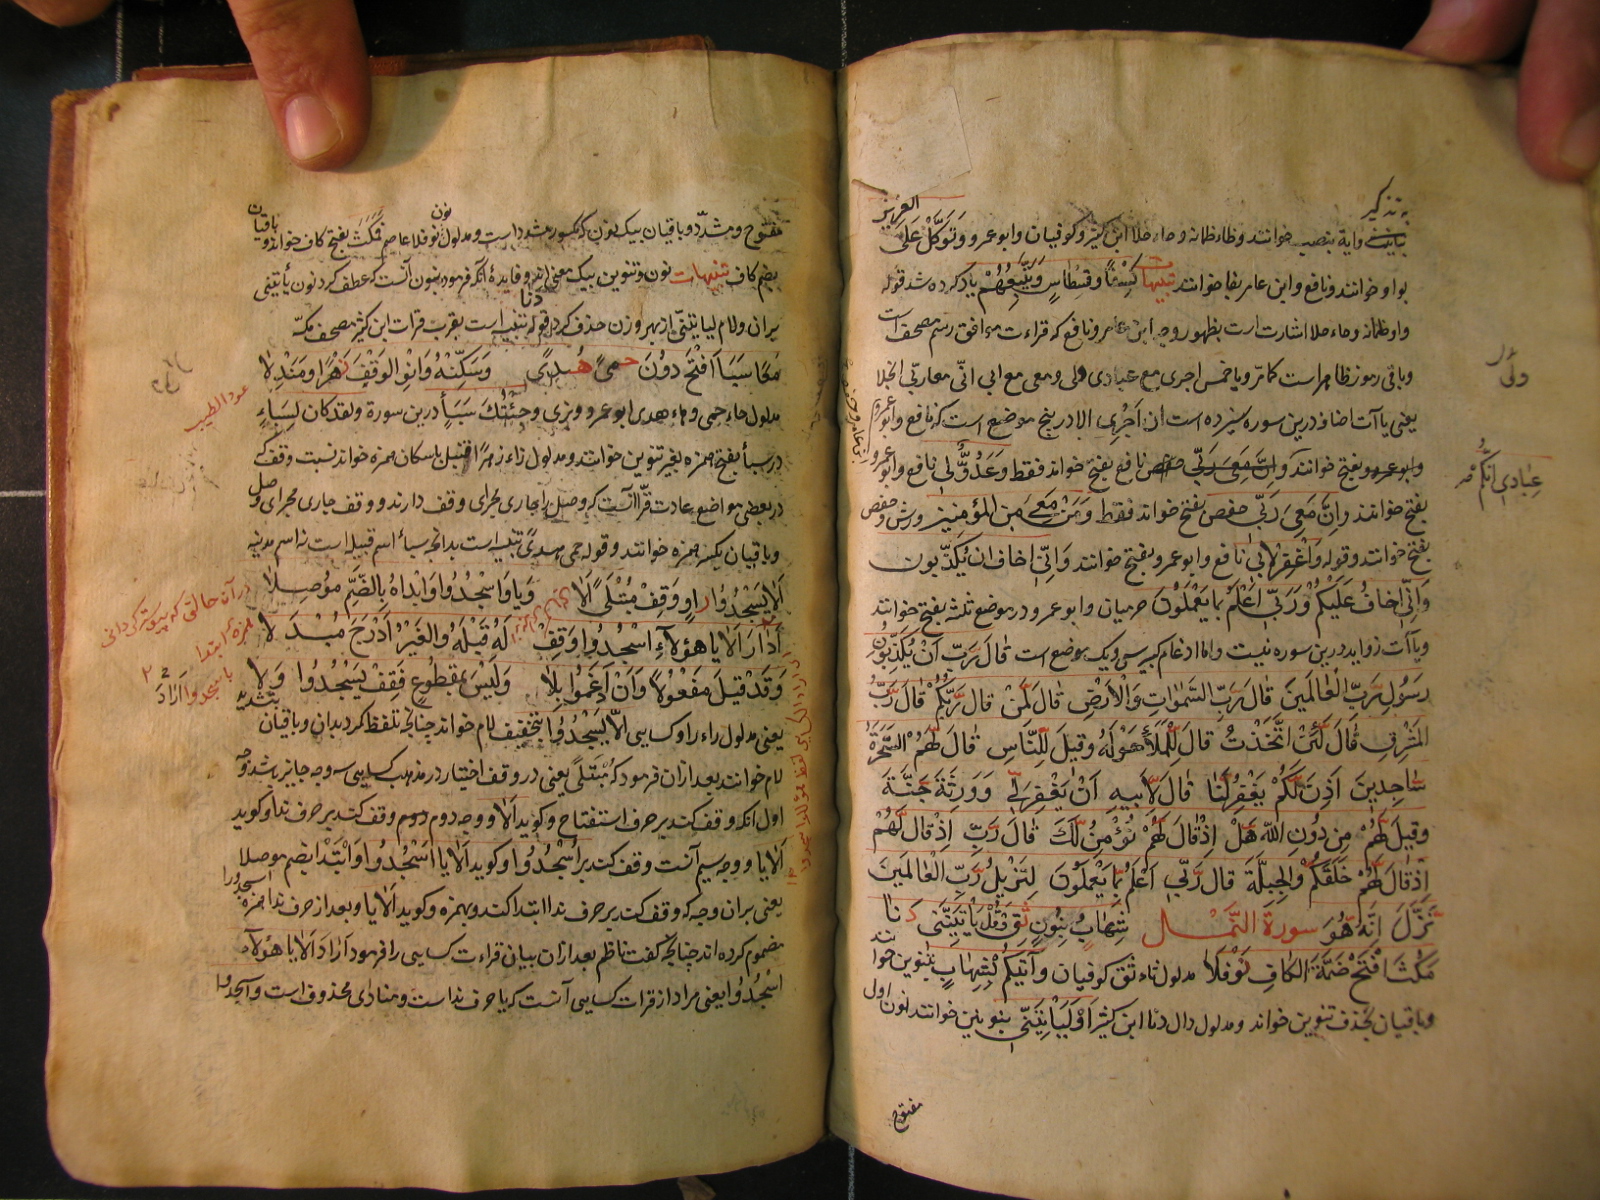 به تذکیر
وآیة بنصب خوانند وظا وظمانه وحاء حلا ابن کثیر وکوفیان وابوعمرو وتوکل علی
العزیز
بواو خوانند ونافع وابن عامر بفا خوانند تنبیهات کسفا وقسطاس ویتبعهم یاد کرده شد قوله
واو ظمانه وحاء حلا اشارت است بظهور وجه ابن عامر ونافع که قراءت موافق رسم مصحف است
وباقی رموز ظاهر است کما مر ویا خمس اجری مع عبادی ولی ومعی مع ابی انی معا ربی انجلا
یعنی یاآت اضافه درین سوره سیزده است ان اجری الا در پنج موضع است که نافع وابوعمرو
بفتح خوانند وان معی ربی حفص بفتح خواند فقط ومن معی من المؤمنین ورش وحفص
بفتح خوانند وقوله واغفر لابی نافع وابوعمرو بفتح خوانند وانی اخاف ان یکذبون
وانی اخاف علیکم وربی اعلم بما یعملون حرمیان وابوعمرو در موضع ثلث بفتح خوانند
ویاآت زواید درین سوره نیست واما ادغام کبیر سی ویک موضع است قال رب ان یکذبون
رسول رب العالمین قال رب السموات والارض قال لمن قال ربکم قال رب
المشرق قال لئن اتخذت قال للملأ حوله وقیل للناس قال لهم السحرة
ساجدین اذن لکم یغفر لنا قال لابیه ان یغفر لی وورثة جنة
وقیل لهم من دون الله هل اذ قال لهم نؤمن لک قال رب اذ قال لهم
اذ قال لهم خلقکم والجبلة قال ربی اعلم بما یعملون لتنزیل رب العالمین
نزل انه هو سورة النمل شهاب بنون ثق وقل یأتیننی دنا
مکث افتح ضمة الکاف نوفلا مدلول ثاء ثق کوفیان وآتیکم بشهاب بتنوین خوانند
وباقیان بحذف تنوین خواند ومدلول دال دنا ابن کثیر اولیأتیننی بنونین خوانند نون اول
مفتوح
عبادی انکم
مفتوح ومشدد وباقیان بیک نون که مکسور مشدد است ومدلول نون نوفلا عاصم فمکث بفتح کاف خواند وباقیان
بضم کاف تنبیهات نون وتنوین بیک معنی اند وفایده آنکه فرمود بنون آنست که عطف کرد نون یأتیننی
بران ولام لیأتیننی از بهر وزن حذف کرد قوله دنا تنبیه است بقرب قرات ابن کثیر بمصحف مکه
معا سبأ افتح دون نون حمی هدی وسکنه وانو الوقف زهرا ومندلا
مدلول حاء حمی وهاء هدی ابوعمرو وبزی وجئتک من سبأ درین سورة ولقد کان لسباء
در سبأ بفتح همزه بغیر تنوین خوانند ومدلول زاء زهرا قنبل باسکان همزه خواند نسبت وقف که
در بعضی مواضع عادت قرا آنست که وصل را جاری مجرای وقف دارند ووقف جاری مجرای وصل
وباقیان بکسر همزه خوانند وقوله حمی هدی تنبیه است بدانکه سبأ اسم قبیله است نه اسم مدینه
الا یسجدوا راو وقف مبتلی الا ویا واسجدوا وابداه بالضم موصلا
اراد الا یا هؤلاء اسجدوا وقف له قبله والغیر ادرج مبدلا
وقد قیل مفعولا وان ادغموا بلا ولیس بمقطوع فقف یسجدوا ولا
یعنی مدلول راء راو کسایی الا یسجدوا بتخفیف لام خواند چنانچه تلفظ کرد بدان وباقیان بتشدید
لام خوانند بعد ازان فرمود که مبتلی یعنی در وقف اختیار در مذهب کسایی سه وجه جایز باشد وجه
اول آنکه وقف کند بر حرف استفتاح وکوید الا ووجه دوم وقف کند بر حرف ندا وکوید
الا یا ووجه سیم آنست وقف کند بر اسجدوا وکوید الا یا اسجدوا وابتدا بضم موصلا
یعنی بران وجه که وقف کند بر حرف ندا ابتدا کند وبهمزه وکوید الا یا وبعد از حرف ندا همزه اسجدوا را
مضموم کرده اند چنانچه کفت ناظم بعد ازان بیان قراءت کسایی را فرمود اراد الا یا هؤلاء
اسجدوا یعنی مراد از قرات کسایی آنست که یا حرف نداست ومنادی محذوف است واسجدوا